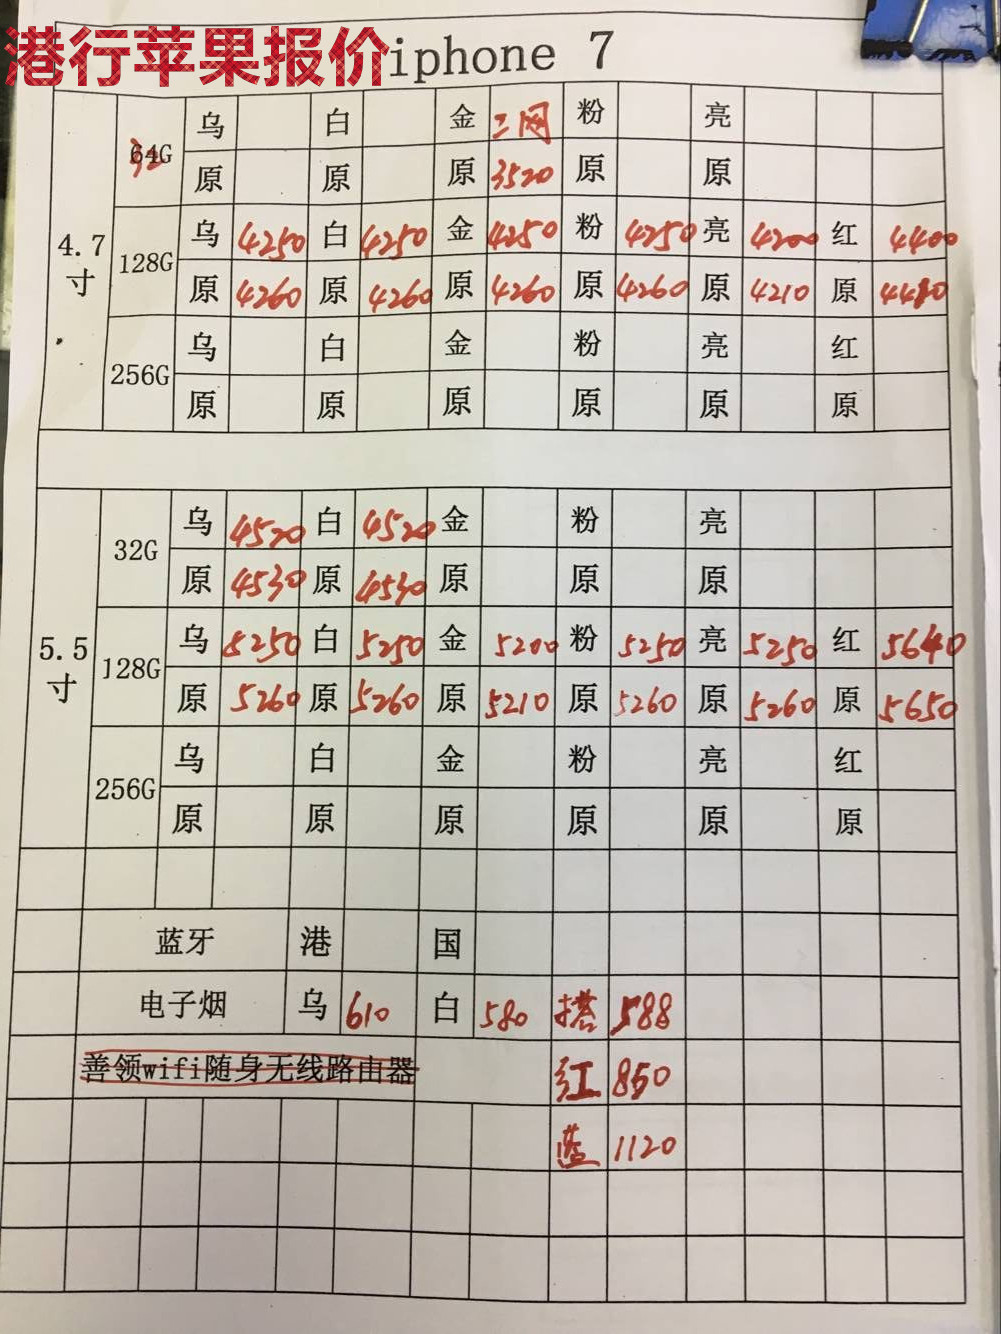 港行苹果报价
iphone 7
4.7寸
64G 32 乌 白 金 三网 粉 亮
原 原 原 3520 原 原
128G 乌 4250 白 4250 金 4250 粉 4250 亮 4200 红 4400
原 4260 原 4260 原 4260 原 4260 原 4210 原
256G 乌 白 金 粉 亮 红
原 原 原 原 原 原
5.5寸
32G 乌 4520 白 4520 金 粉 亮
原 4530 原 4530 原 原 原
128G 乌 5250 白 5250 金 5200 粉 5250 亮 5250 红 5640
原 5260 原 5260 原 5210 原 5260 原 5260 原 5650
256G 乌 白 金 粉 亮 红
原 原 原 原 原 原
蓝牙 港 国
电子烟 乌 610 白 580 搭 588
善领wifi随身无线路由器 红 850
蓝 1120